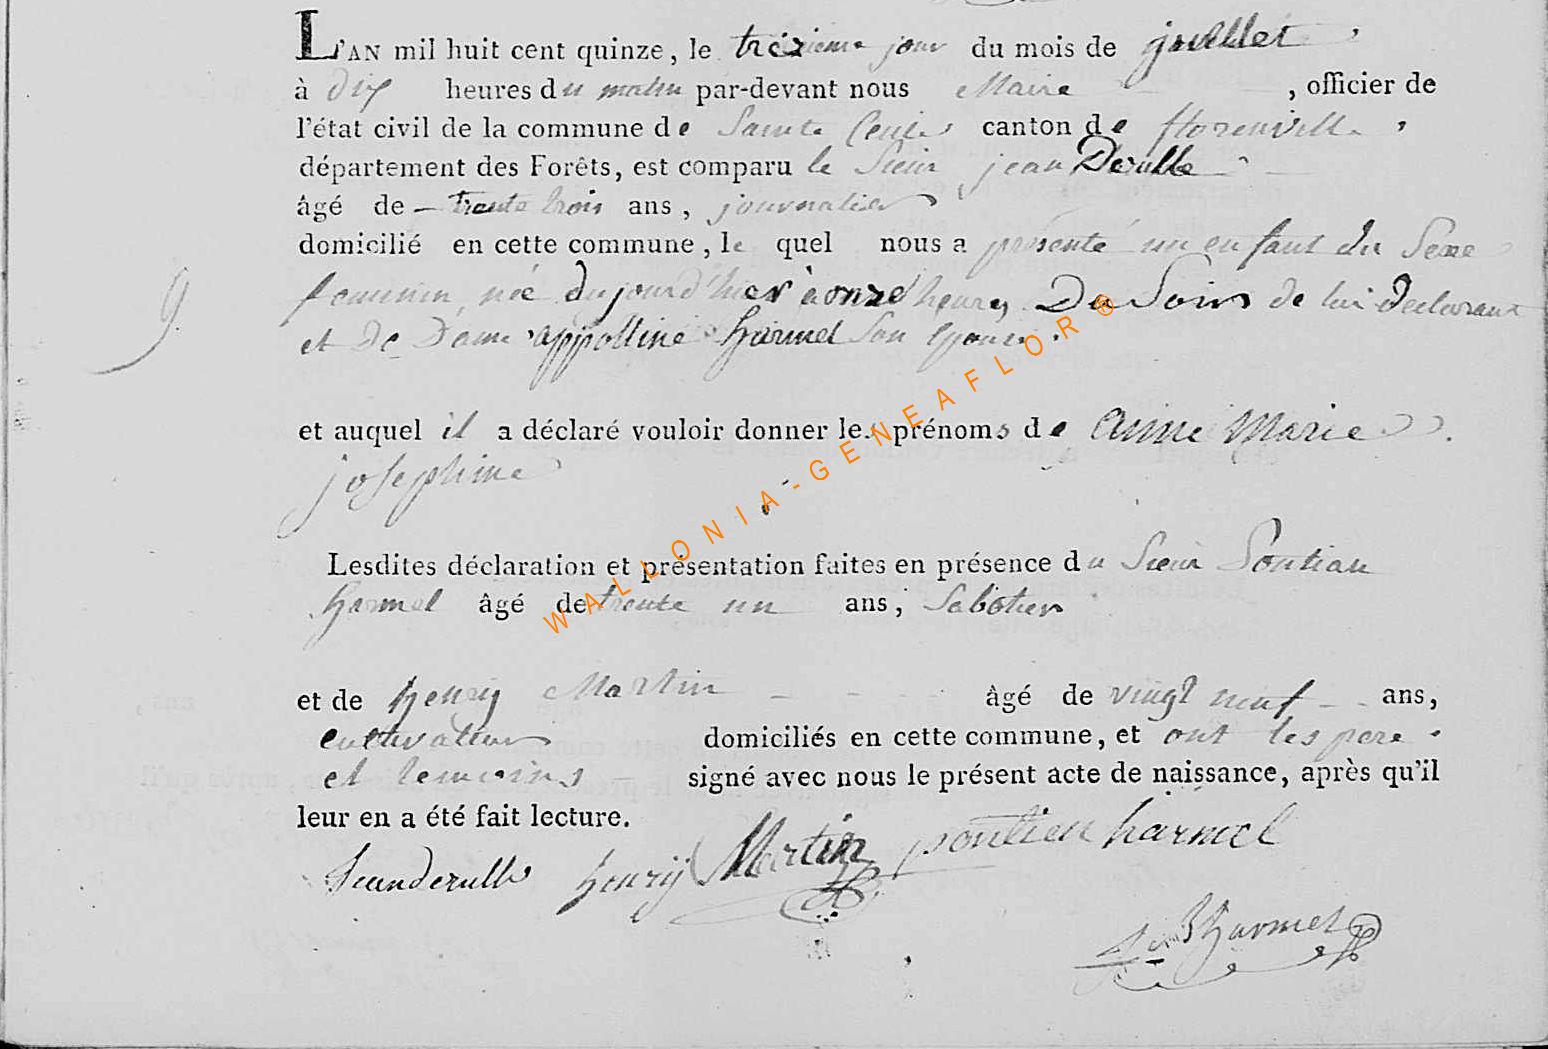 L'AN mil huit cent quinze, le trézieme jour du mois de juillet
à dix heures du matin par-devant nous Maire, officier de
l'état civil de la commune de Sainte Cecile canton de florenville,
département des Forêts, est comparu le Sieur jean Derulle
âgé de trente trois ans, journalier
domicilié en cette commune, le quel nous a présenté un enfant du Sexe
feminin née dujourd'hier à onze heures Du Soir de lui declarant
et de Dame appolline harmel son epouse.
9
et auquel il a déclaré vouloir donner les prénoms de anne Marie
josephine
Lesdites déclaration et présentation faites en présence du Sieur
harmel âgé de trente un ans, Sabotier
et de henry Martin âgé de vingt neuf ans,
cultivateur domiciliés en cette commune, et ont les pere
et temoins signé avec nous le présent acte de naissance, après qu'il
leur en a été fait lecture.
Jeanderulle henry Martin pontien harmel
harmel
WALLONIA-GENEAFLOR ®